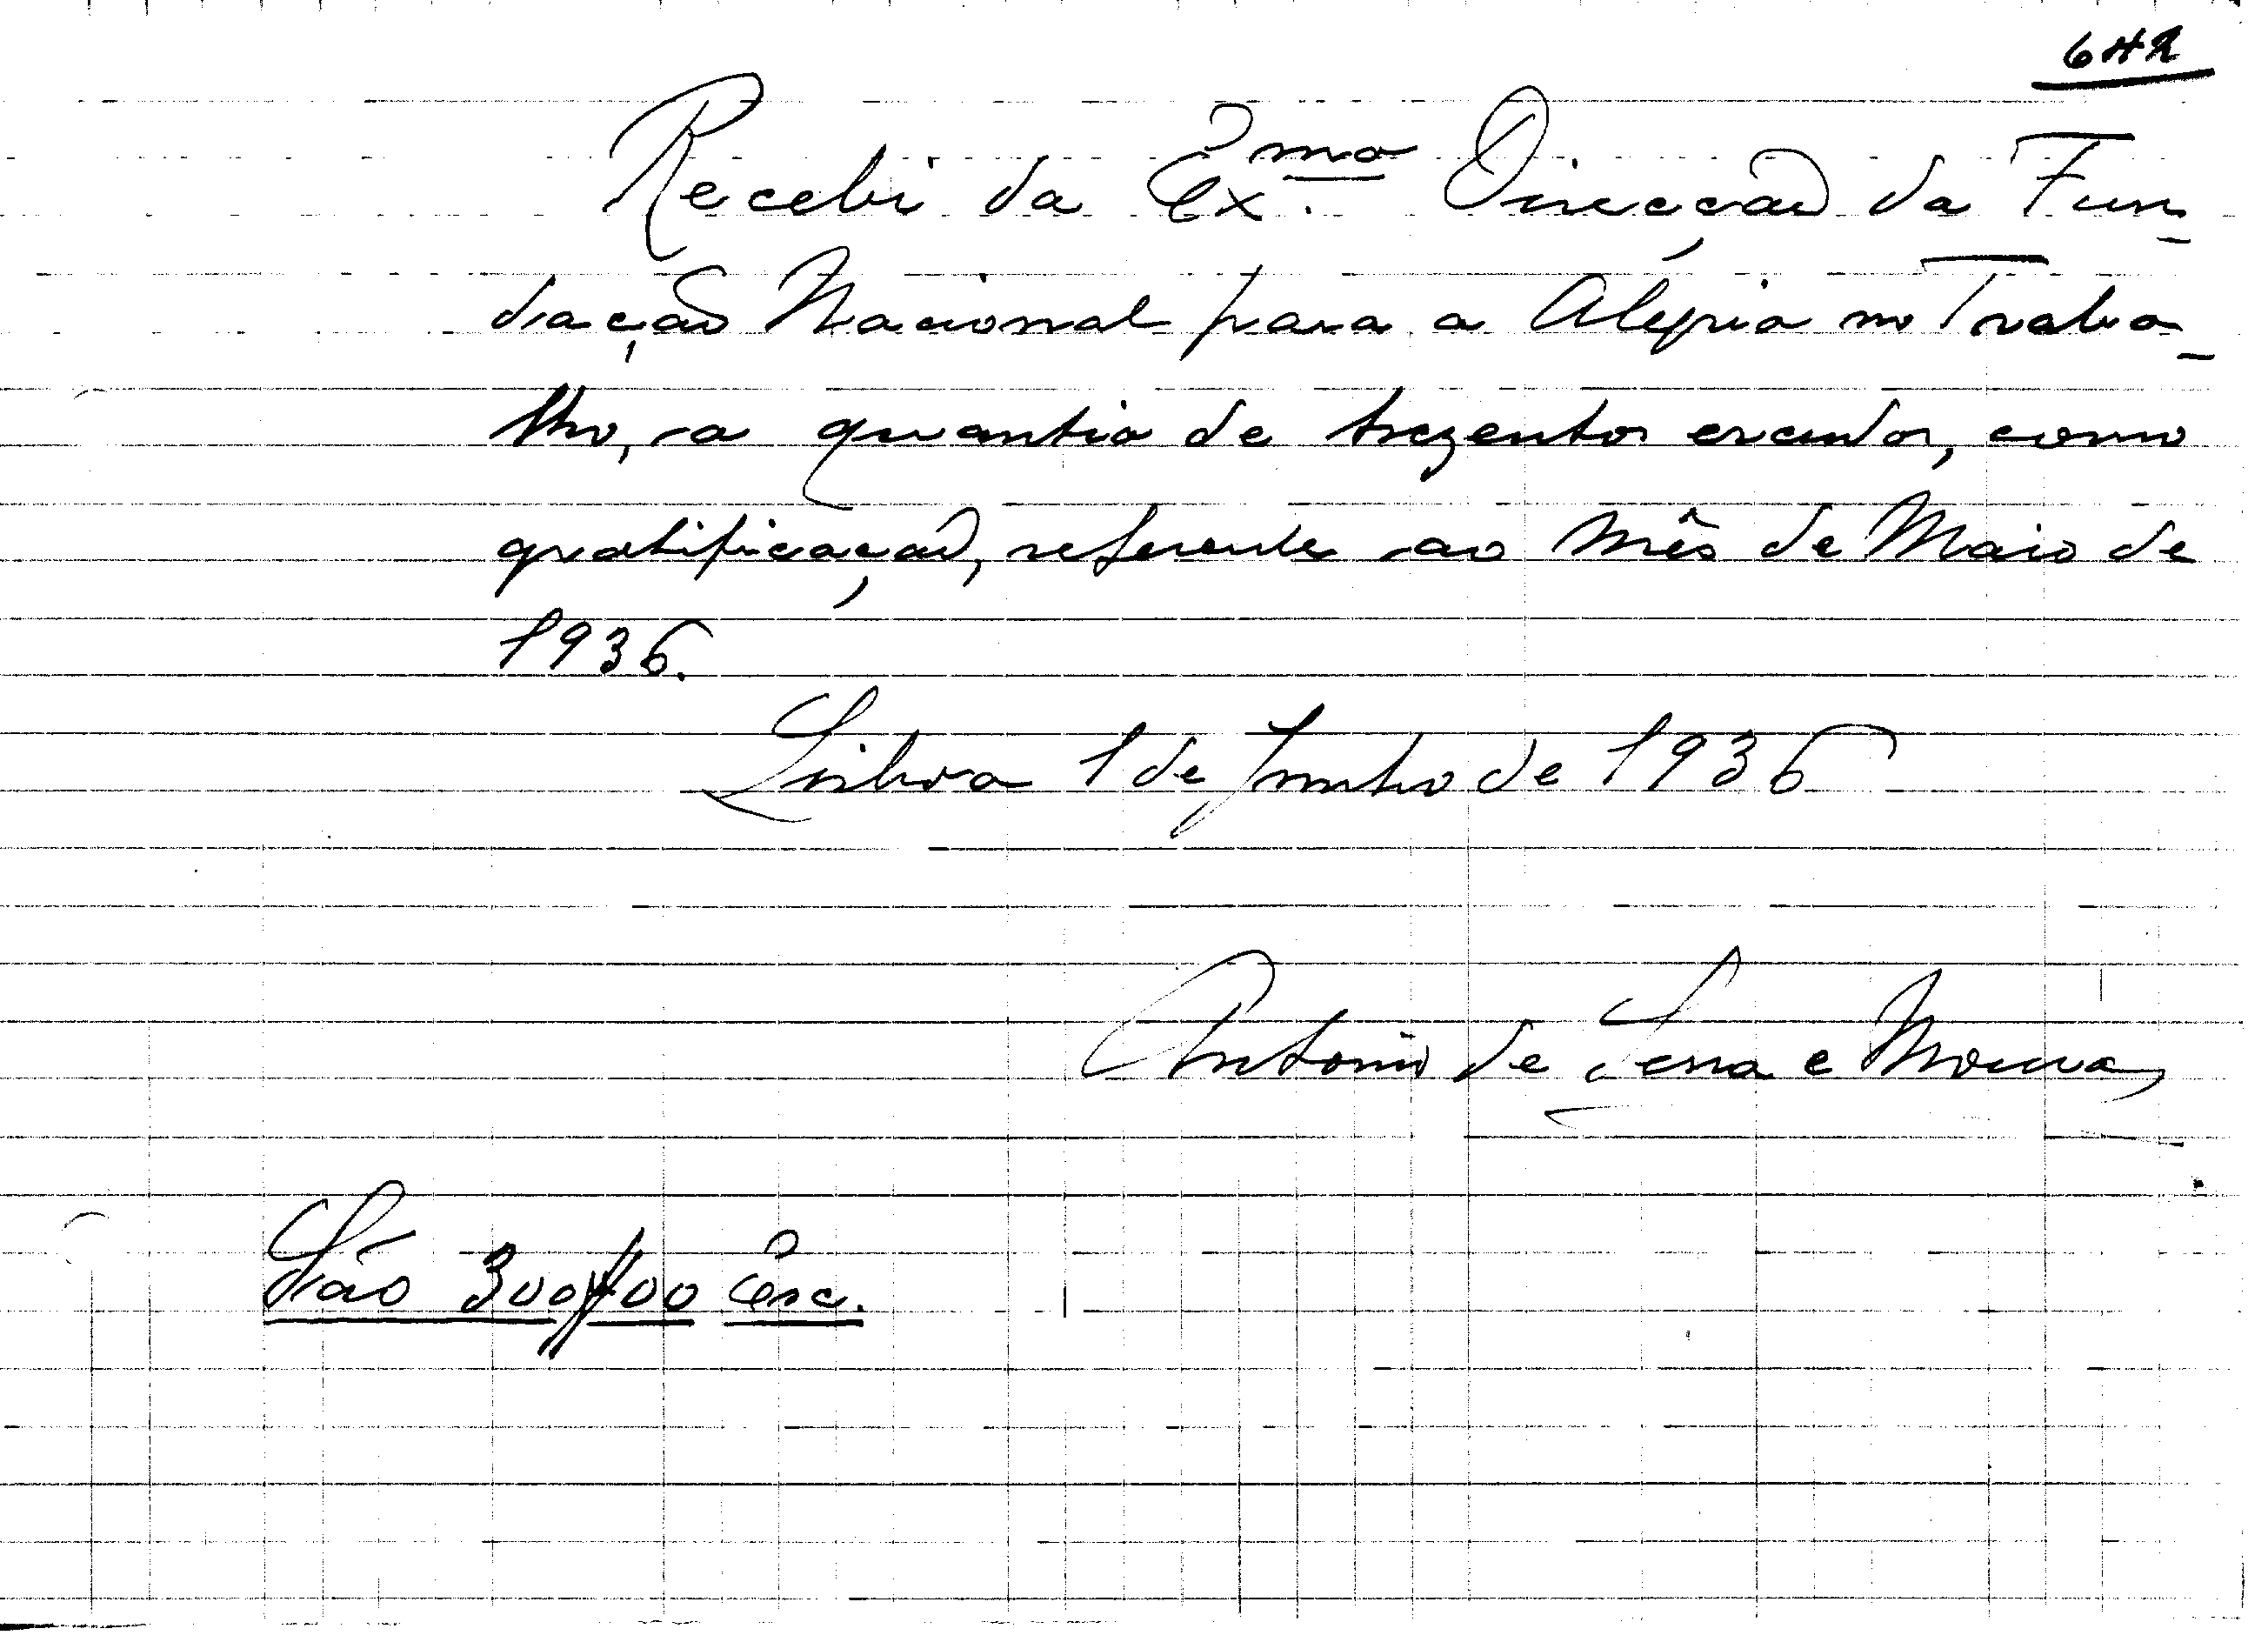 642
Recebi da Ex.ma Direcção da Fun-
dação Nacional para a Alegria no Traba-
lho, a quantia de trezentos escudos, como
gratificação, referente ao mês de Maio de
1936.
Lisboa 1 de Junho de 1936
Antonio de Sena e Moura
São 300$00 Esc.